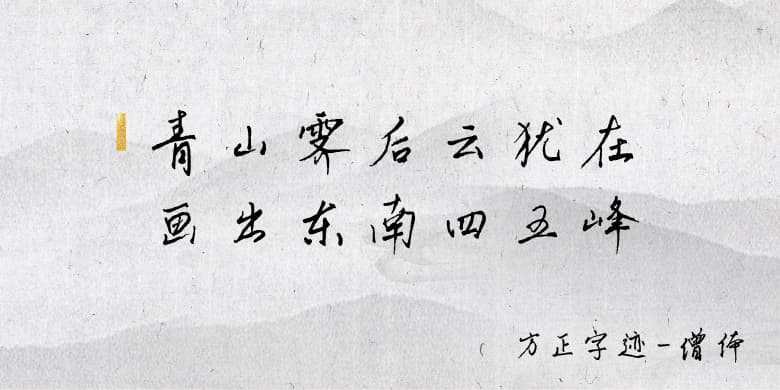 青山霁后云犹在
画出东南四五峰
方正字迹-僧体